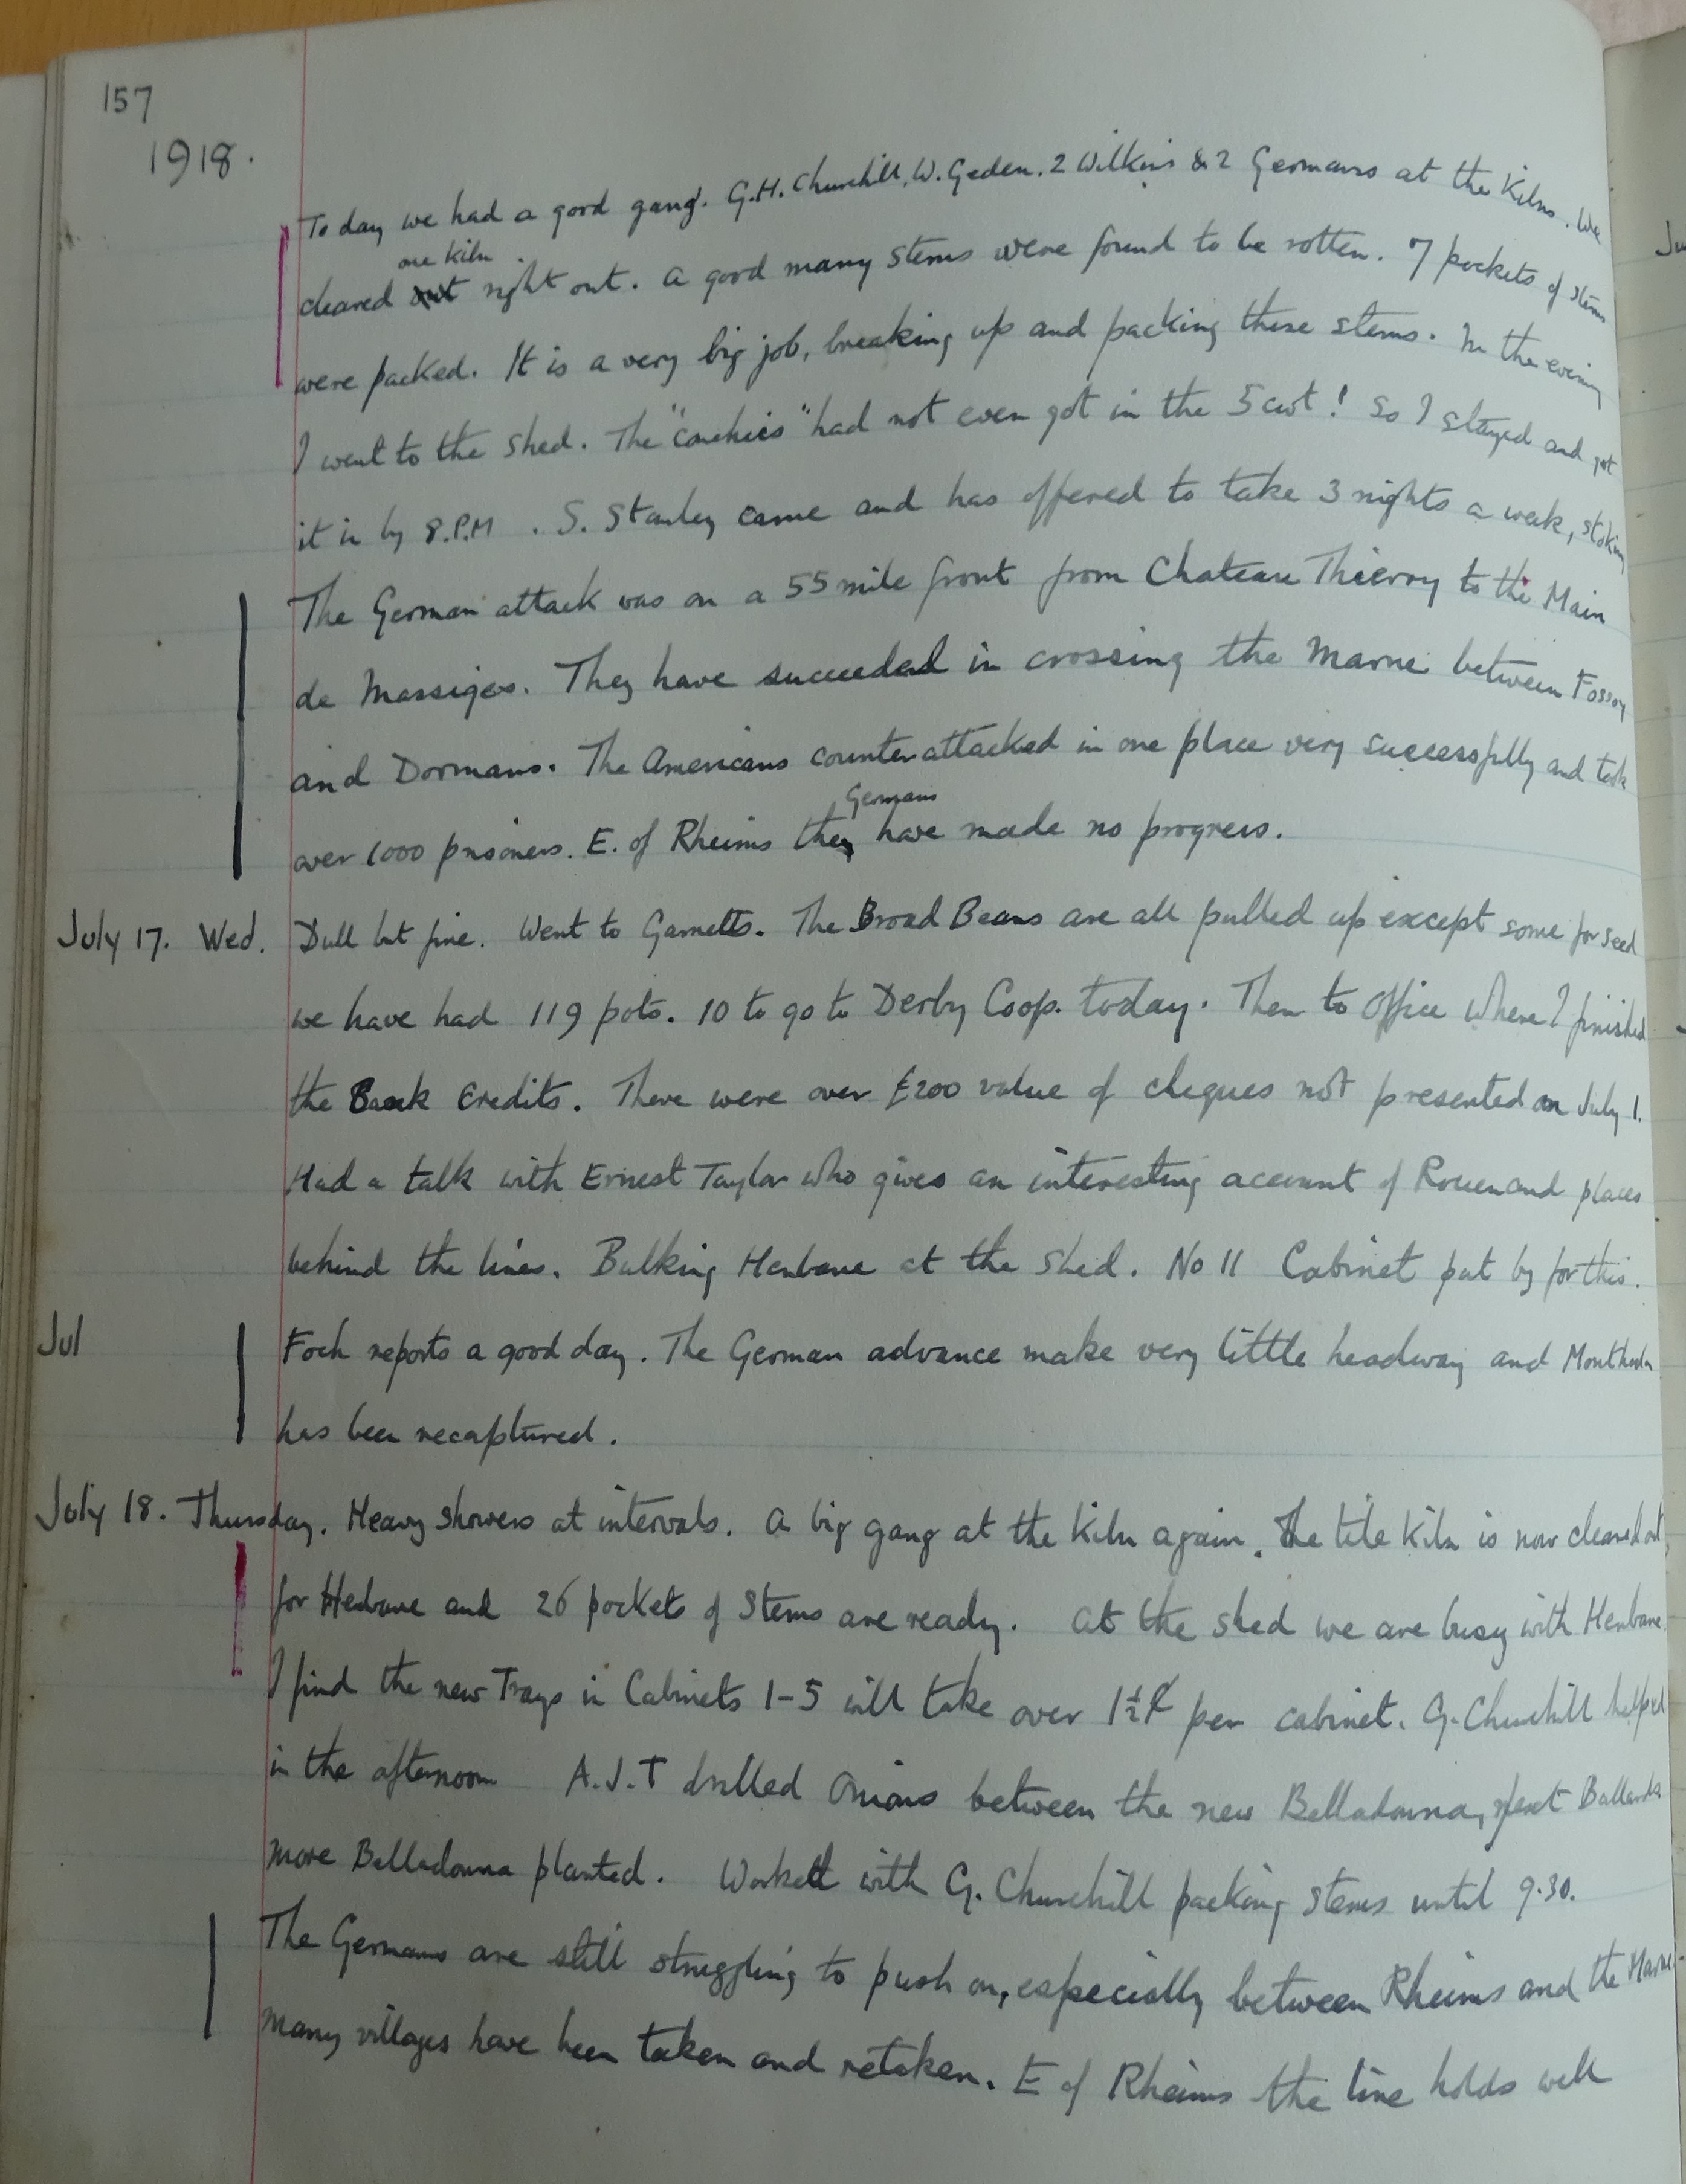 157
1918.
To day we had a good gang. G.H. Churchill, W. Geden, 2 Wilkins & 2 Germans at the Kilns. We
one kiln
cleared out right out. A good many stems were found to be rotten. 7 pockets of stems
were packed. It is a very big job, breaking up and packing these stems. In the evening
I went to the shed. The "conchies" had not even got in the 5 cwt! So I stayed and got
it in by 8.P.M. S. Stanley came and has offered to take 3 nights a week, stoking
The German attack was on a 55 mile front from Chateau Thierry to the Main
de Massiges. They have succeeded in crossing the Marne between Fossoy
and Dormans. The Americans counterattacked in one place very successfully and took
Germans
over 1000 prisoners. E. of Rheims they have made no progress.
July 17. Wed. Dull but fine. Went to Garnetts. The Broad Beans are all pulled up except some for seed
we have had 119 pots. 10 to go to Derby Coop. today. Then to Office where I finished
the Bank Credits. There were over £200 value of cheques not presented on July 1.
Had a talk with Ernest Taylor who gives an interesting account of Rouen and places
behind the lines. Bulking Henbane at the shed. No 11 Cabinet put by for this.
Jul Foch reports a good day. The German advance make very little headway and
has been recaptured.
July 18. Thursday. Heavy showers at intervals. A big gang at the Kiln again. The tile Kiln is now cleared out
for Henbane and 26 pockets of stems are ready. At the shed we are busy with Henbane.
I find the new Trays in Cabinets 1-5 will take over 1½ per cabinet. G. Churchill helped
in the afternoon A.J.T drilled Onions between the new Belladonna, next Ballards
more Belladonna planted. Worked with G. Churchill packing stems until 9.30.
The Germans are still struggling to push on, especially between Rheims and the Marne.
Many villages have been taken and retaken. E of Rheims the line holds well